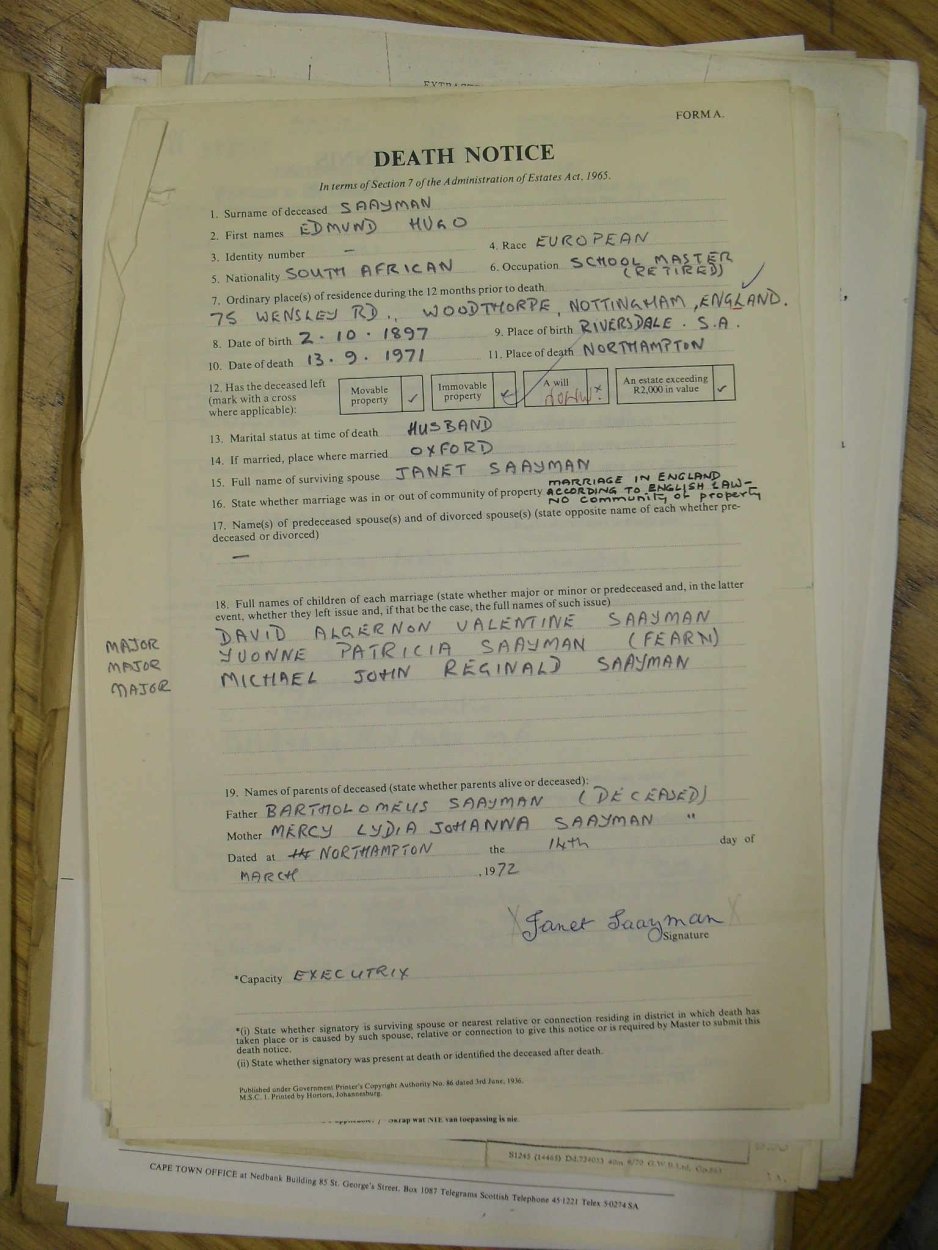 FORM A.
DEATH NOTICE
In terms of Section 7 of the Administration of Estates Act, 1965.
1. Surname of deceased SAAYMAN
2. First names EDMUND HUGO
3. Identity number — 4. Race EUROPEAN
5. Nationality SOUTH AFRICAN 6. Occupation SCHOOL MASTER
(RETIRED)
7. Ordinary place(s) of residence during the 12 months prior to death
75 WENSLEY RD., WOODTHORPE, NOTTINGHAM, ENGLAND.
8. Date of birth 2.10.1897 9. Place of birth RIVERSDALE. S.A.
10. Date of death 13.9.1971 11. Place of death NORTHAMPTON
12. Has the deceased left
(mark with a cross
where applicable):
Movable
property ✓
Immovable
property ✓
A will
An estate exceeding
R2,000 in value ✓
13. Marital status at time of death HUSBAND
14. If married, place where married OXFORD
15. Full name of surviving spouse JANET SAAYMAN
16. State whether marriage was in or out of community of property MARRIAGE IN ENGLAND
ACCORDING TO ENGLISH LAW—
NO community of property
17. Name(s) of predeceased spouse(s) and of divorced spouse(s) (state opposite name of each whether pre-
deceased or divorced)
—
18. Full names of children of each marriage (state whether major or minor or predeceased and, in the latter
event, whether they left issue and, if that be the case, the full names of such issue)
MAJOR DAVID ALGERNON VALENTINE SAAYMAN
MAJOR YVONNE PATRICIA SAAYMAN (FEARN)
MAJOR MICHAEL JOHN REGINALD SAAYMAN
19. Names of parents of deceased (state whether parents alive or deceased):
Father BARTHOLOMEUS SAAYMAN (DECEASED)
Mother MERCY LYDIA JOHANNA SAAYMAN "
Dated at NORTHAMPTON the 14th day of
MARCH , 1972
Janet Saayman
Signature
*Capacity EXECUTRIX
*(i) State whether signatory is surviving spouse or nearest relative or connection residing in district in which death has
taken place or is caused by such spouse, relative or connection to give this notice or is required by Master to submit this
death notice.
(ii) State whether signatory was present at death or identified the deceased after death.
Published under Government Printer's Copyright Authority No. 86 dated 3rd June, 1936.
M.S.C. 1. Printed by Hortors, Johannesburg.
Skrap wat NIE van toepassing is nie.
CAPE TOWN OFFICE at Nedbank Building 85 St. George's Street. Box 1087 Telegrams Scottish Telephone 45-1221 Telex 5-0274 SA